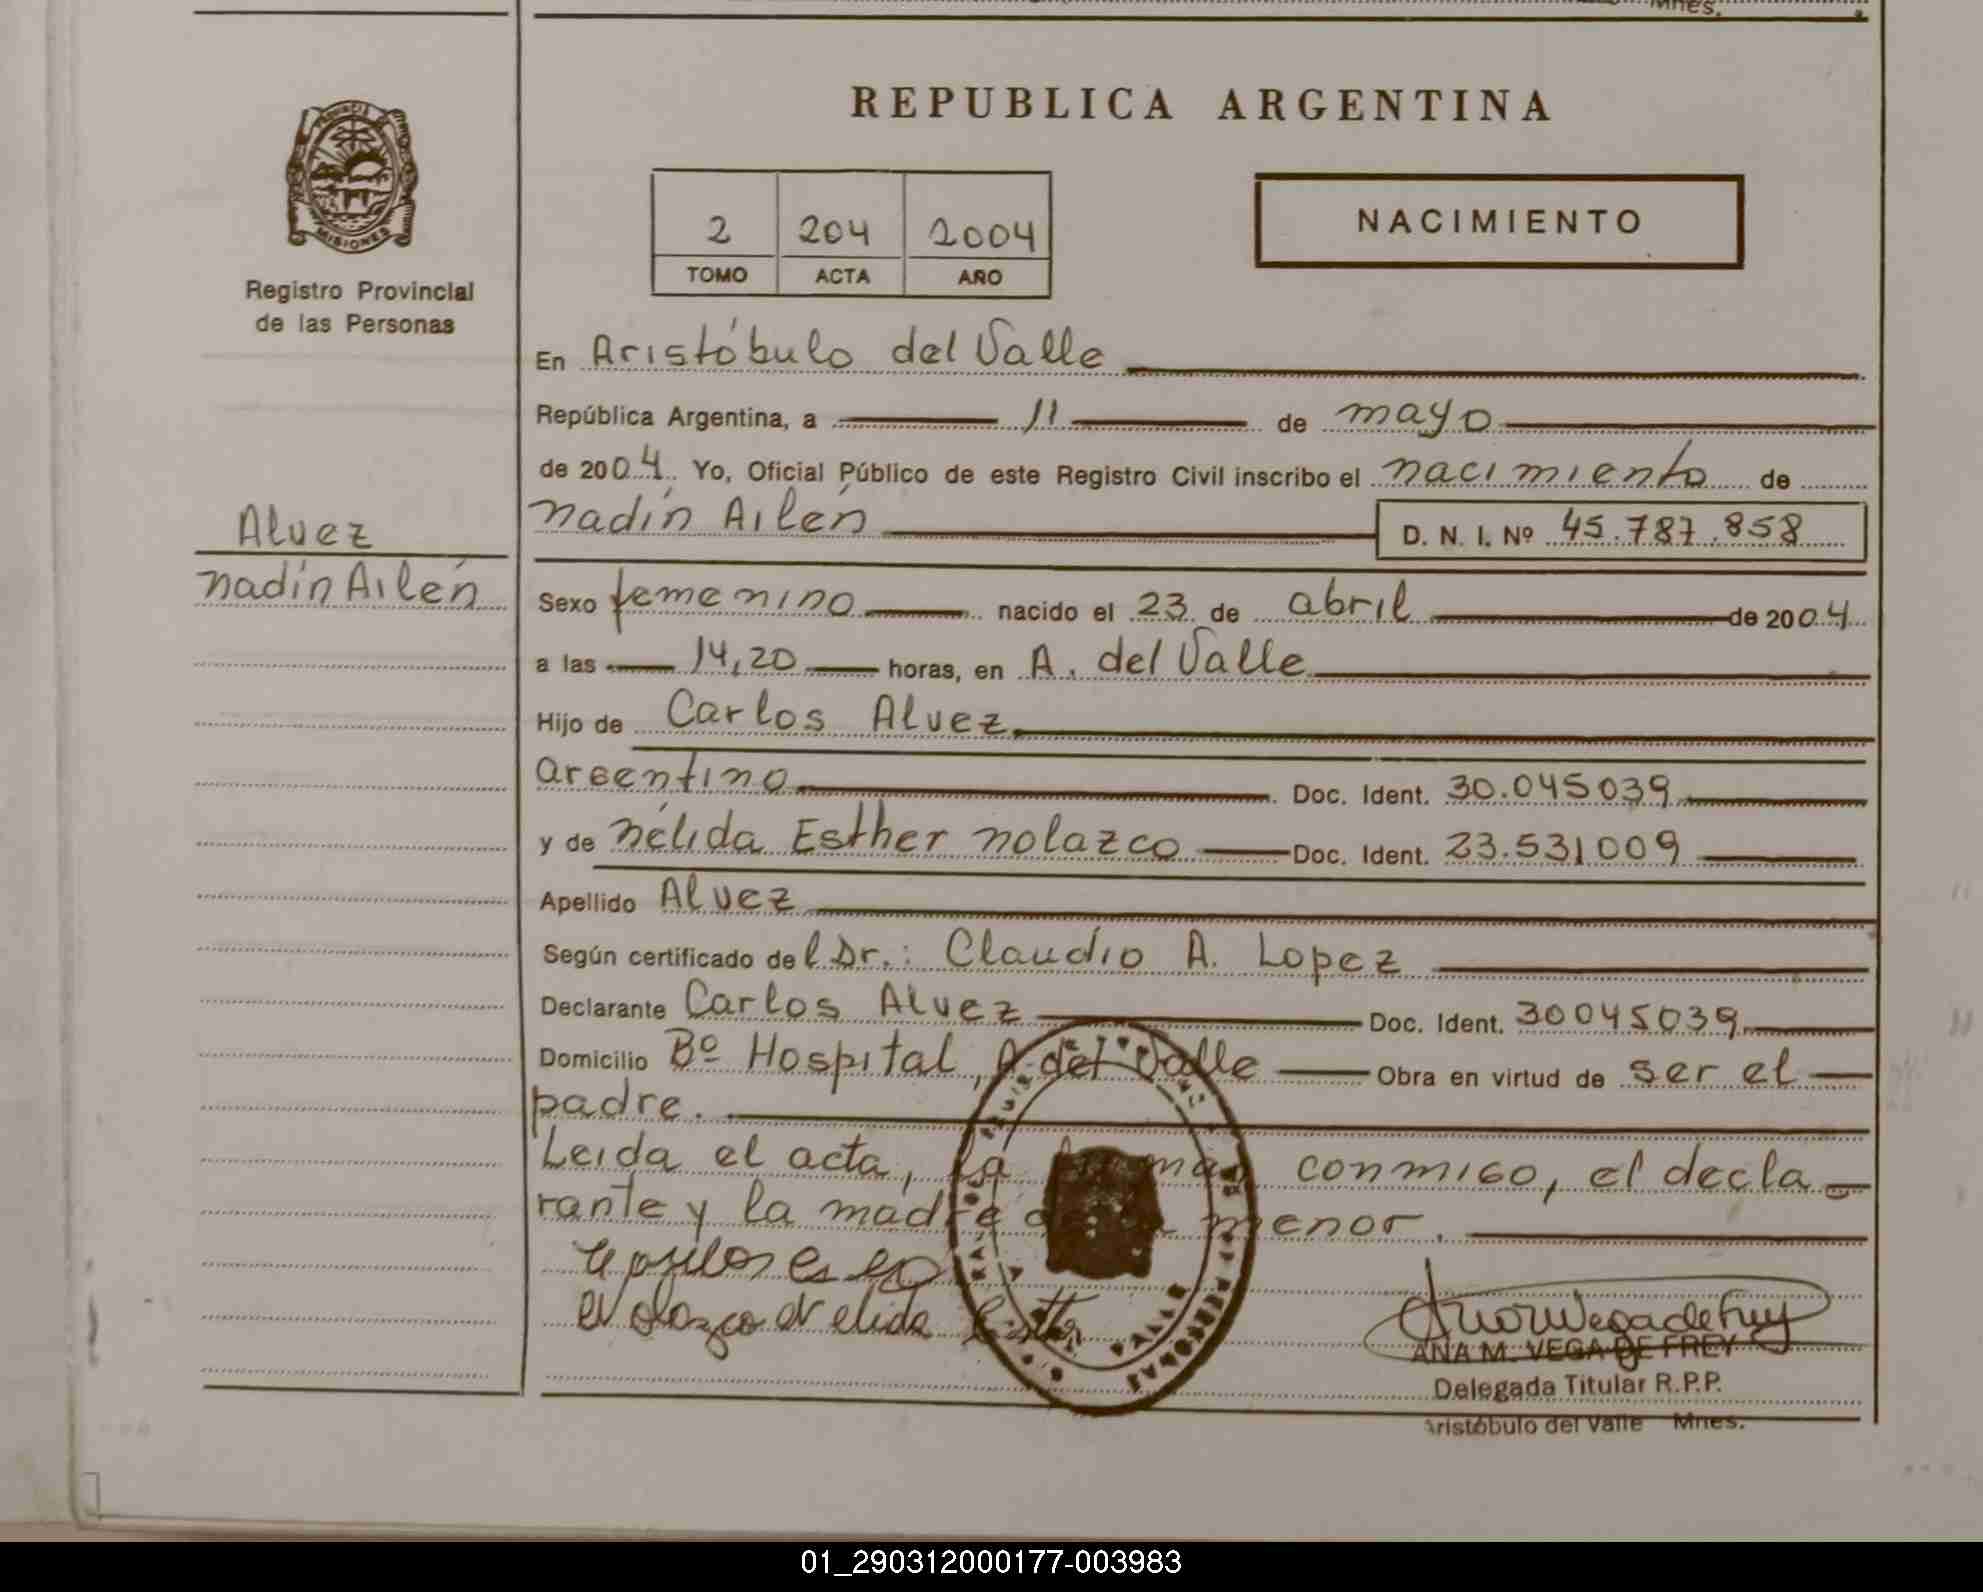 Mnes.
REPUBLICA ARGENTINA
PROVINCIA DE
MISIONES
Registro Provincial
de las Personas
2 204 2004
TOMO ACTA AÑO
NACIMIENTO
En Aristóbulo del Valle
República Argentina, a 11 de mayo
de 2004 Yo, Oficial Público de este Registro Civil inscribo el nacimiento de
Nadín Ailén D. N. I. Nº 45.787.858
Alvez
Nadín Ailén
Sexo femenino nacido el 23 de abril de 2004
a las 14,20 horas, en A. del Valle
Hijo de Carlos Alvez
argentino Doc. Ident. 30.045039
y de Nélida Esther Nolazco Doc. Ident. 23.531009
Apellido Alvez
Según certificado del Dr.: Claudio A. Lopez
Declarante Carlos Alvez Doc. Ident. 30045039
Domicilio Bº Hospital, A. del Valle Obra en virtud de ser el
padre.
Leida el acta, la conmigo, el decla
rante y la madre menor.
Nolazco Nelida Esther
ANA M. VEGA DE FREY
Delegada Titular R.P.P.
Aristóbulo del Valle Mnes.
VALLE
01_290312000177-003983